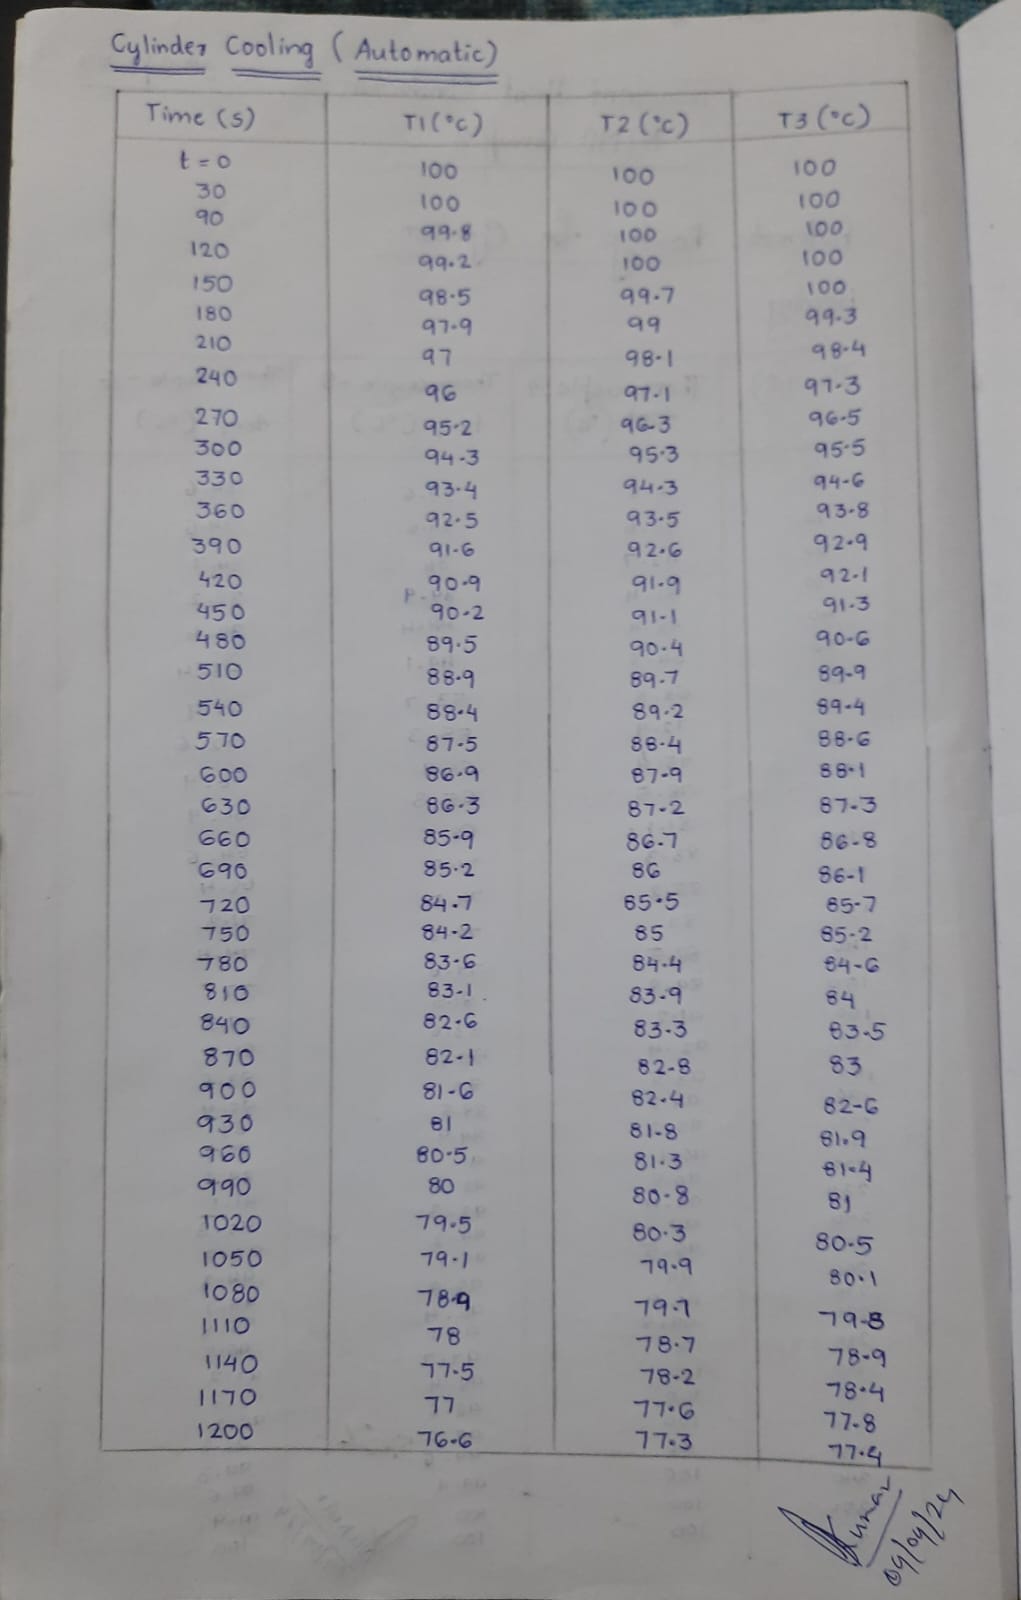 Cylinder Cooling (Automatic)
Time (s) T1 (°C) T2 (°C) T3 (°C)
t = 0 100 100 100
30 100 100 100
90 99.8 100 100
120 99.2 100 100
150 98.5 99.7 100
180 97.9 99 99.3
210 97 98.1 98.4
240 96 97.1 97.3
270 95.2 96.3 96.5
300 94.3 95.3 95.5
330 93.4 94.3 94.6
360 92.5 93.5 93.8
390 91.6 92.6 92.9
420 90.9 91.9 92.1
450 90.2 91.1 91.3
480 89.5 90.4 90.6
510 88.9 89.7 89.9
540 88.4 89.2 89.4
570 87.5 88.4 88.6
600 86.9 87.9 88.1
630 86.3 87.2 87.3
660 85.9 86.7 86.8
690 85.2 86 86.1
720 84.7 85.5 85.7
750 84.2 85 85.2
780 83.6 84.4 84.6
810 83.1 83.9 84
840 82.6 83.3 83.5
870 82.1 82.8 83
900 81.6 82.4 82.6
930 81 81.8 81.9
960 80.5 81.3 81.4
990 80 80.8 81
1020 79.5 80.3 80.5
1050 79.1 79.9 80.1
1080 78.9 79.7 79.8
1110 78 78.7 78.9
1140 77.5 78.2 78.4
1170 77 77.6 77.8
1200 76.6 77.3 77.4
09/09/24